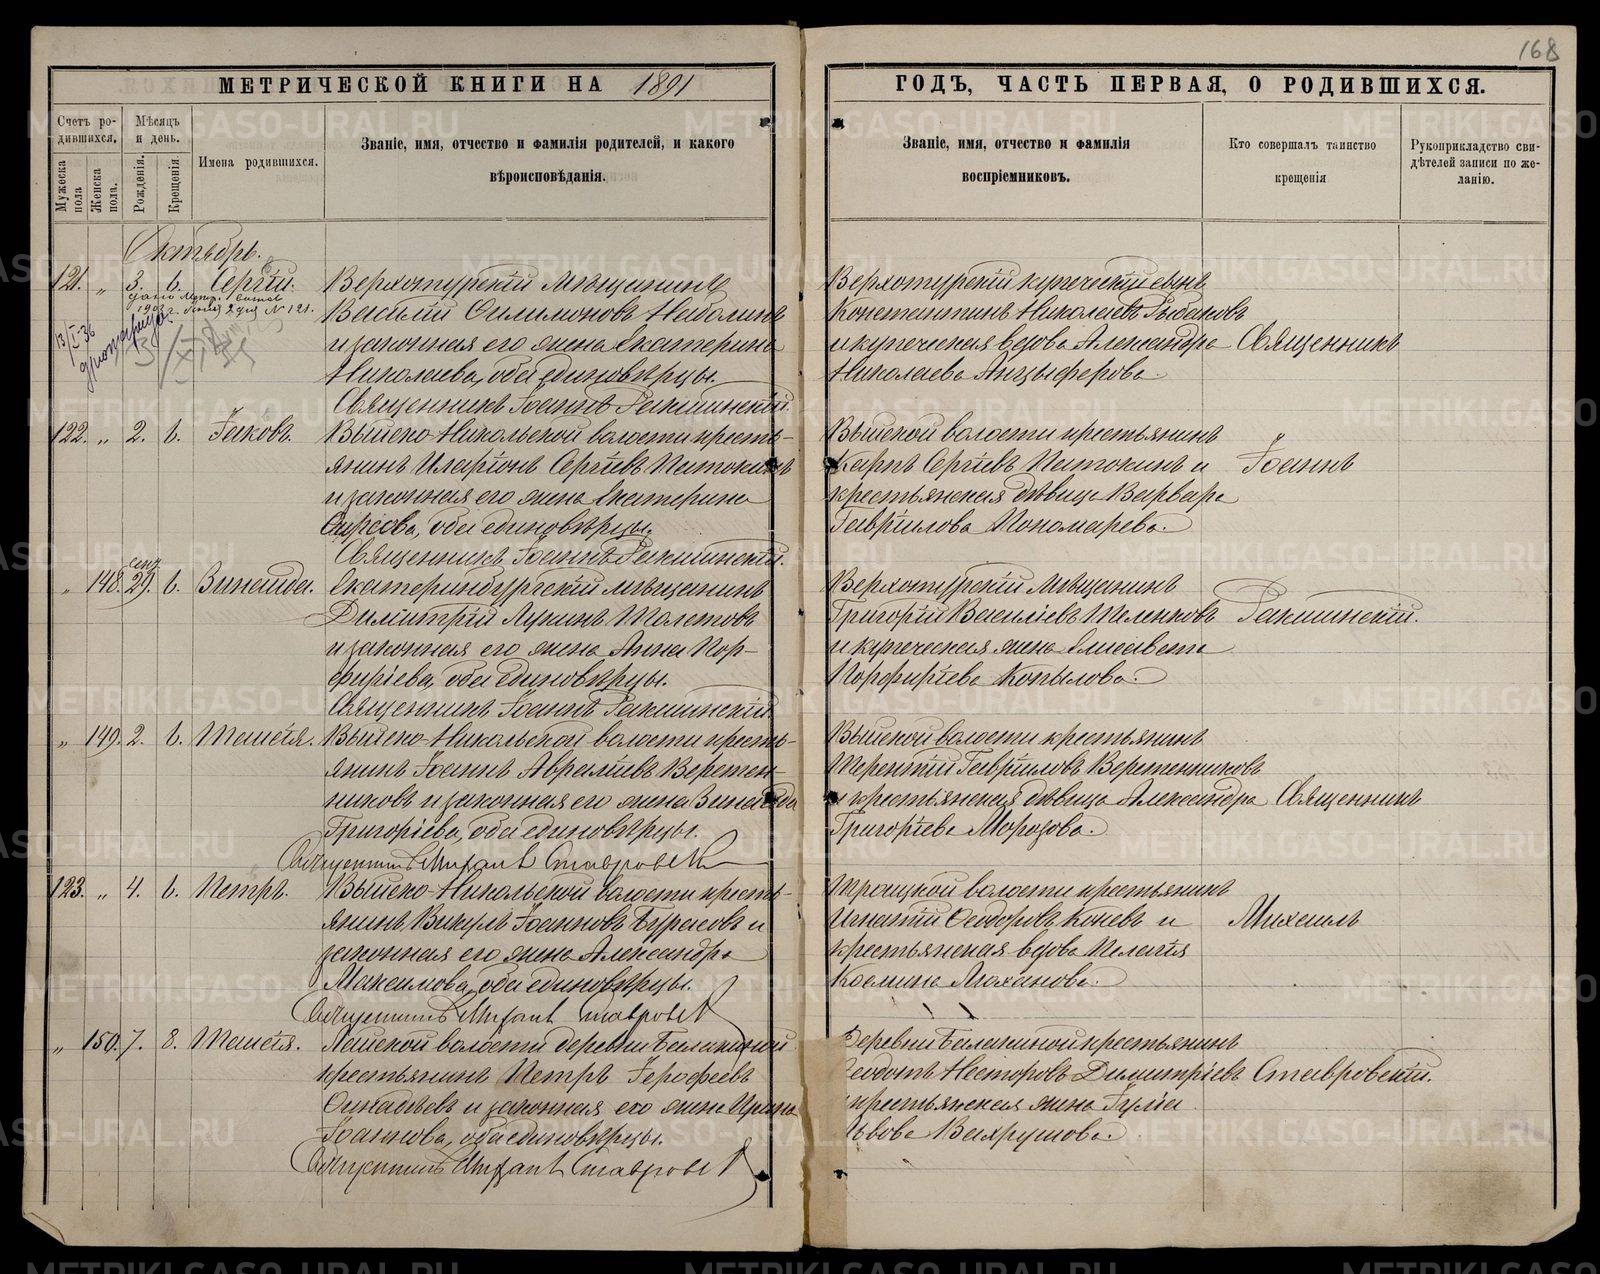 168
МЕТРИЧЕСКОЙ КНИГИ НА 1891
ГОДЪ, ЧАСТЬ ПЕРВАЯ, О РОДИВШИХСЯ.
Счетъ ро-
дившихся.
Мужеска
пола
Женска
пола.
Мѣсяцъ
и день.
Рожденія.
Крещенія
Имена родившихся.
Званіе, имя, отчество и фамилія родителей, и какого
вѣроисповѣданія.
Званіе, имя, отчество и фамилія
воспріемниковъ.
Кто совершалъ таинство
крещенія
Рукоприкладство сви-
дѣтелей записи по же-
ланію.
Октябрь.
121. „ 3. 6. Сергій.
13/I-36
Верхотурскій мѣщанинъ
Василій
и законная его жена Екатерина
Николаева, оба единовѣрцы.
Священникъ Іоаннъ Ракшинскій.
Верхотурскій купеческій сынъ
Константинъ Николаевъ Рыбаковъ
и купеческая вдова Александра
Николаева Анцыферова.
Священникъ
122. „ 2. 6. Іаковъ.
Выйско-Никольской волости кресть-
янинъ Иларіонъ Сергіевъ Патокинъ
и законная его жена Екатерина
оба единовѣрцы.
Священникъ Іоаннъ Ракшинскій.
Выйской волости крестьянинъ
Карпъ Сергіевъ Патокинъ и
крестьянская дѣвица Варвара
Гавріилова Пономарева.
Іоаннъ
„ 148. сент. 29. 6. Зинаида.
Екатеринбургскій мѣщанинъ
Димитрій Лукинъ
и законная его жена Анна Пор-
фиріева, оба единовѣрцы.
Священникъ Іоаннъ Ракшинскій.
Верхотурскій мѣщанинъ
Григорій Василіевъ
и купеческая жена Елисавета
Порфиріева Копылова.
Ракшинскій.
„ 149. 2. 6. Таисія.
Выйско-Никольской волости кресть-
янинъ Іоаннъ Авраміевъ Веретен-
никовъ и законная его жена Зинаида
Григоріева, оба единовѣрцы.
Священникъ Михаилъ Ставровскій
Выйской волости крестьянинъ
Терентій Гавріиловъ Веретенниковъ
и крестьянская дѣвица Александра
Григоріева Морозова.
Священникъ
123. „ 4. 6. Петръ.
Выйско-Никольской волости кресть-
янинъ Викулъ Іоанновъ Бурасовъ и
законная его жена Александра
Максимова, оба единовѣрцы.
Священникъ Михаилъ Ставровскій
Троицкой волости крестьянинъ
Игнатій Ѳеодоровъ Коневъ и
крестьянская вдова Пелагія
Космина
Михаилъ
„ 150. 7. 8. Таисія.
Лайской волости деревни Балакиной
крестьянинъ Петръ Іерофеевъ
и законная его жена Ирина
Іоаннова, оба единовѣрцы.
Священникъ Михаилъ Ставровскій
Деревни Балакиной крестьянинъ
Ѳеодотъ Несторовъ Димитріевъ
крестьянская жена Іулія
Львова Вахрушова.
Ставровскій.
METRIKI.GASO-URAL.RU